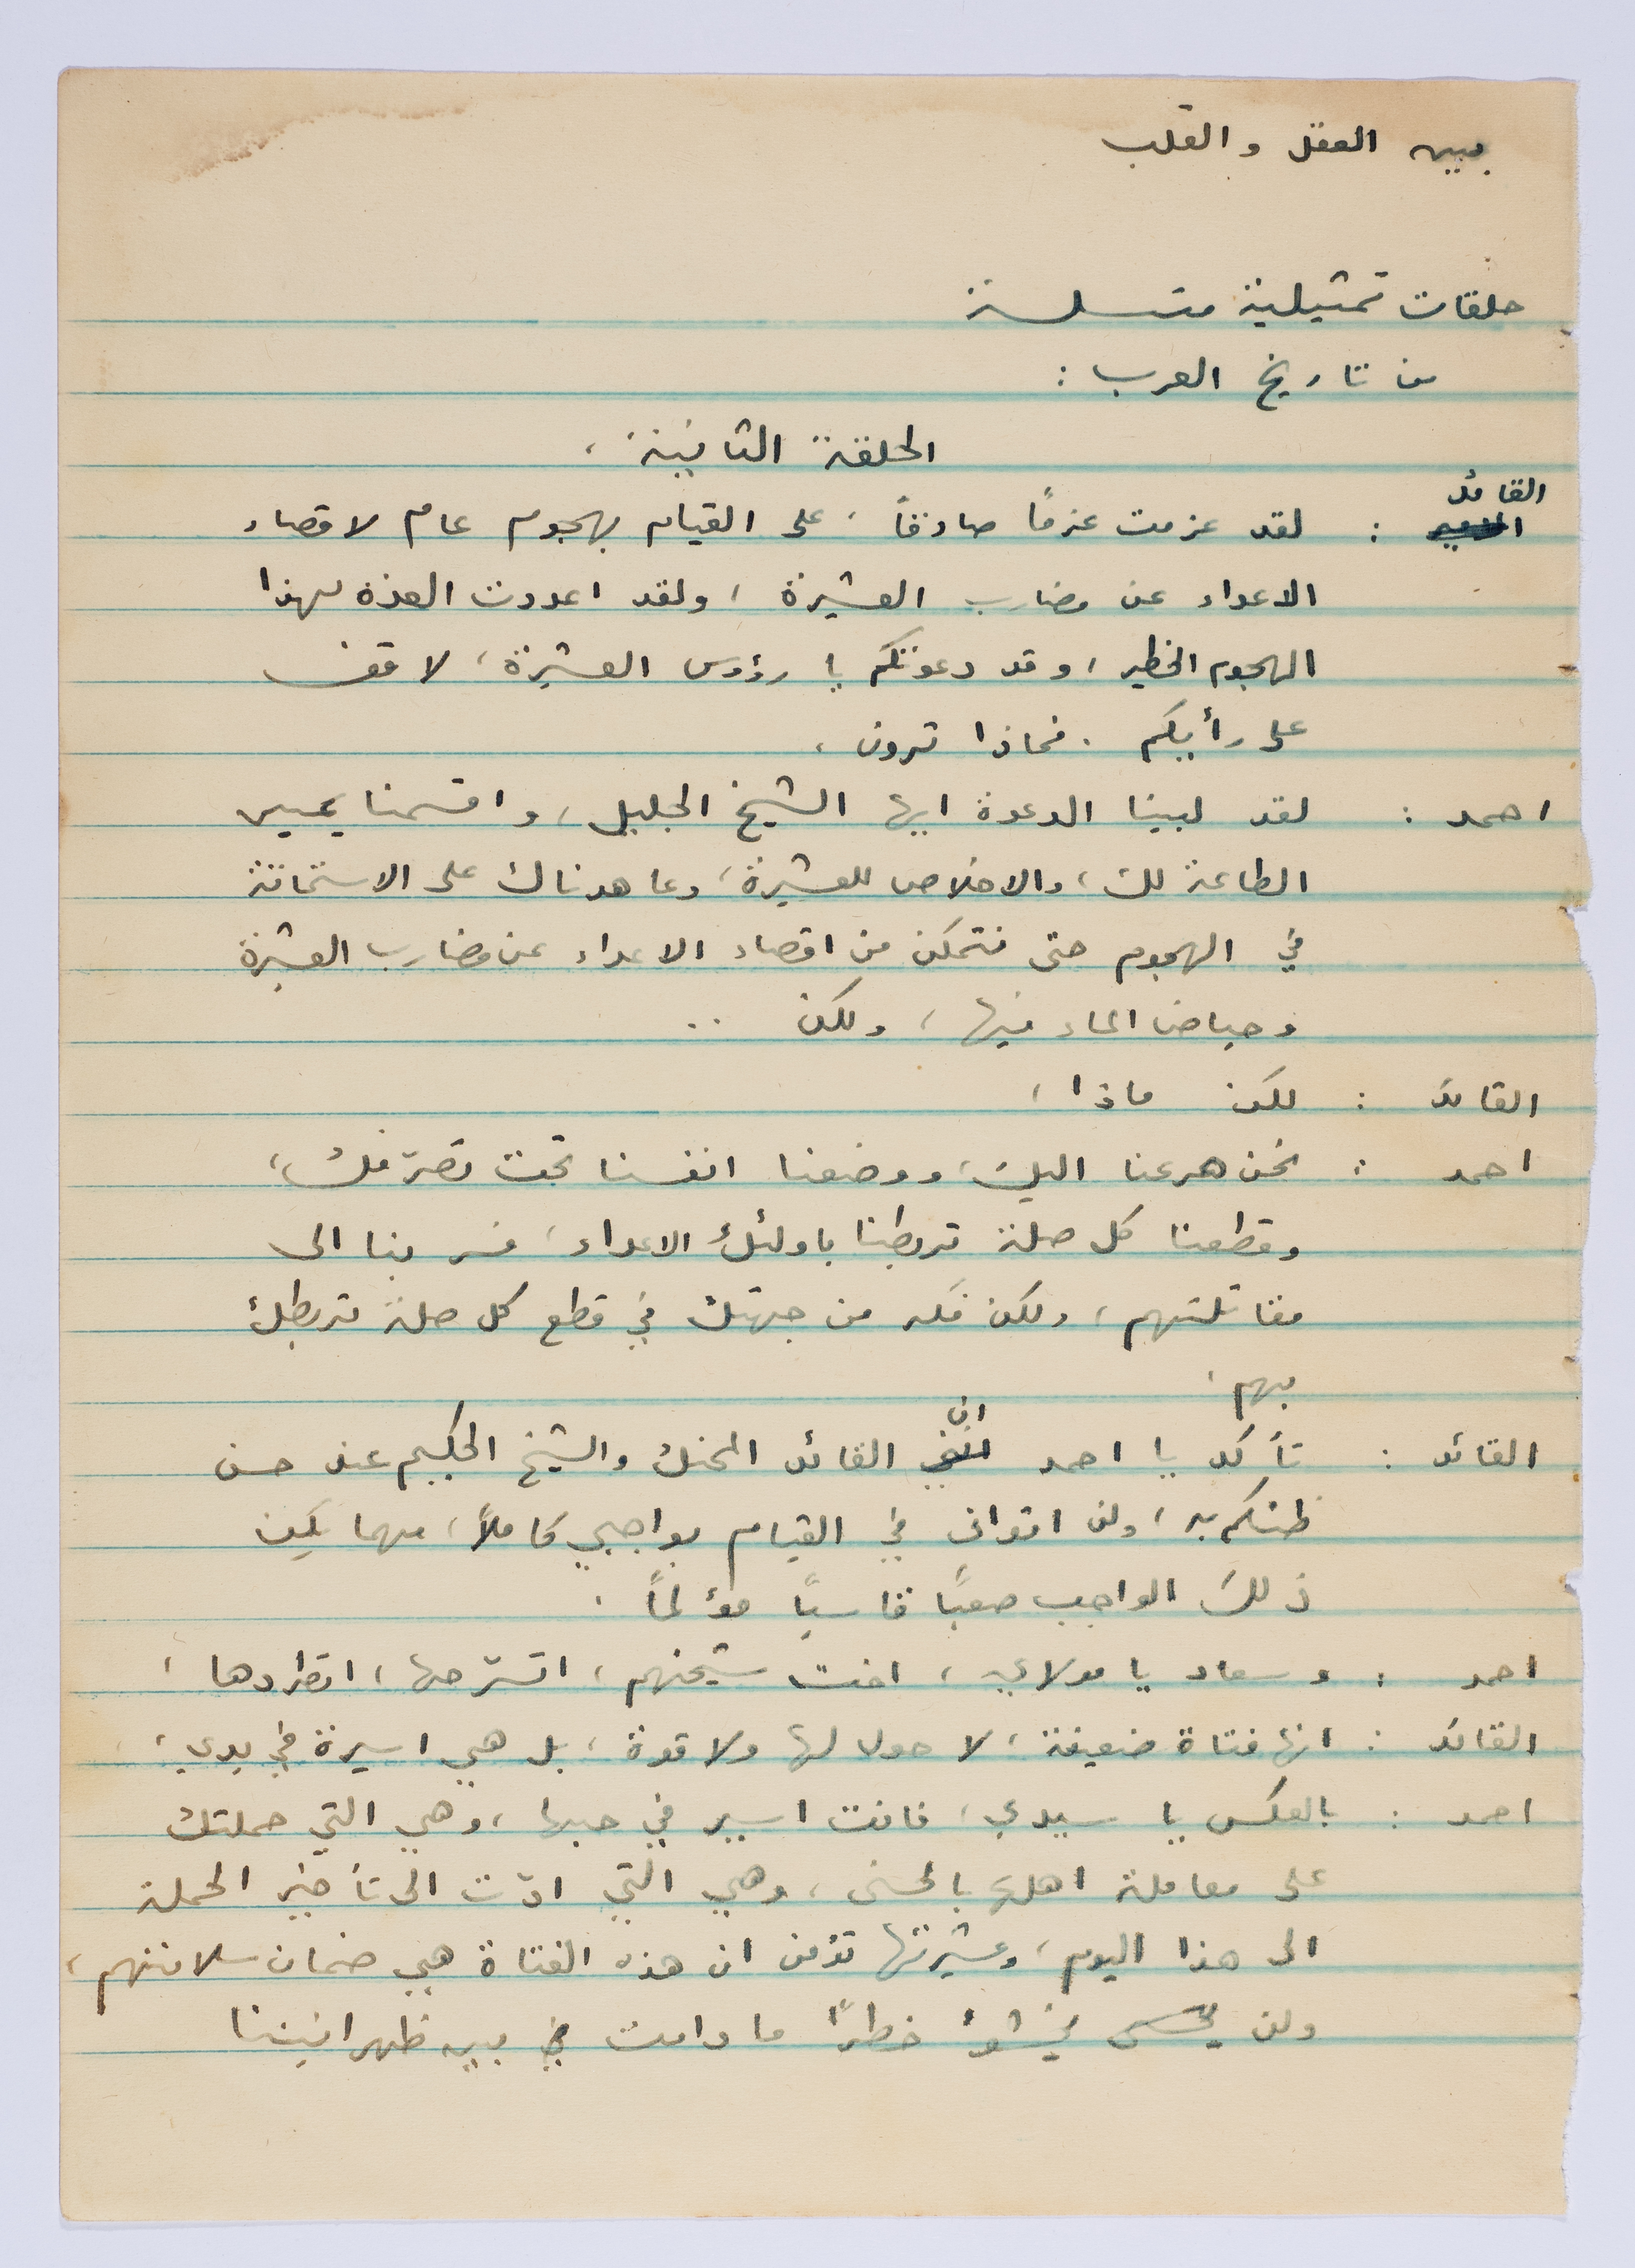 بين العقل والقلب
حلقات تمثيلية متسلسلة
من تاريخ العرب :
الحلقة الثانية ،
القائد : لقد عزمت عزمًا صادقاً ، على القيام بهجوم عام لاقصاء
الاعداء عن مضارب العشيرة ، ولقد اعددت العدة لهذا
الهجوم الخطير ، وقد دعوتكم يا رؤوس العشيرة ، لاقف
على رأيكم . فماذا ترون ،
احمد : لقد لبينا الدعوة ايها الشيخ الجليل ، واقسمنا يمين
الطاعة لك ، والاخلاص للعشيرة ، وعاهدناك على الاستماتة
في الهجوم حتى نتمكن من اقصاء الاعداء عن مضارب العشيرة
وحياض الماء فيها ، ولكن ..
القائد : لكن ماذا ،
احمد : نحن هرعنا اليك ، ووضعنا انفسنا تحت تصرّفك ،
وقطعنا كل صلة تربطنا باولئك الاعداء ، فسر بنا الى
مقاتلتهم ، ولكن فكر من جهتك في قطع كل صلة تربطك
بهم .
القائد : تأكد يا احمد انّ القائد المحنك والشيخ الحكيم عند حسن
ظنكم به ، ولن اتوانى في القيام بواجبي كاملاً ، مهما يكن
ذلك الواجب صعبًا قاسيًا مؤلمًا .
احمد : وسعاد يا مولاي ، اخت شيخهم ، اتسرّحها ، اتطردها ،
القائد : انها فتاة ضعيفة ، لا حول لها ولا قوة ، بل هي اسيرة في يدي ،
احمد : بالعكس يا سيدي ، فانت اسير في حبها ، وهي التي حملتك
على معاملة اهلها بالحسنى ، وهي التي ادّت الى تأخير الحملة
الى هذا اليوم ، وعشيرتها تؤمن ان هذه الفتاة هي ضمان سلامتهم ،
ولن يخشوا خطرًا ما دامت بين ظهرانيننا